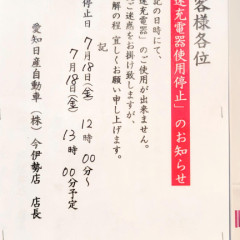 客様各位
速充電器使用停止」のお知らせ
記の日時にて、
速充電器」のご使用が出来ません。
ご迷惑をお掛け致しますが、
解の程 宜しくお願い申し上げます。
記
停止日 7月18日(金) 12時00分〜
7月18日(金) 13時00分予定
愛知日産自動車(株) 今伊勢店 店長